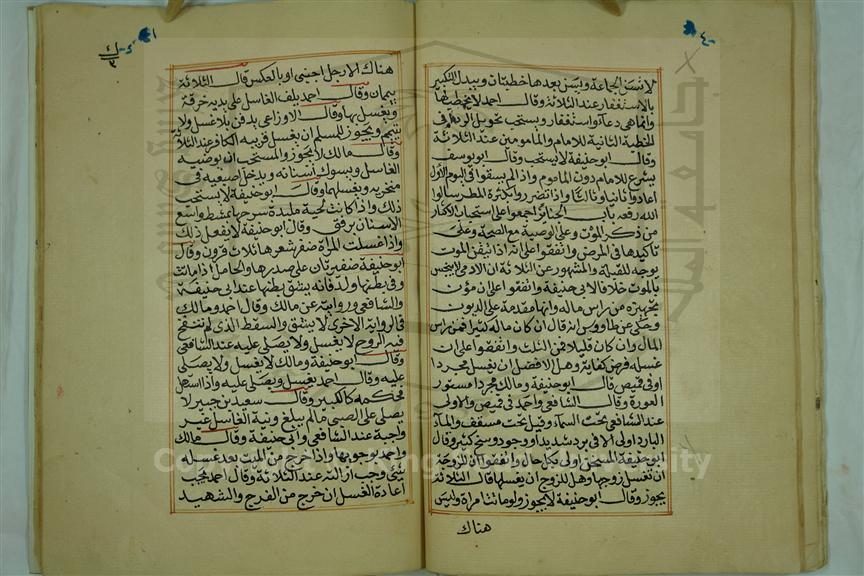 لا تسن الجماعة ويسن بعدها خطبتان ويبدل التكبير
بالاستغفار عند الثلاثة وقال احمد لا يخطب لها
وانما هي دعاء واستغفار ويستحب تحويل الرداء في
الخطبة الثانية للامام والمامومين عند الثلاثة
وقال ابو حنيفة لا يستحب وقال ابو يوسف
يشرع للامام دون الماموم واذا لم يسقوا في اليوم الاول
اعادوا ثانيا وثالثا واذا تضرروا بكثرة المطر سالوا
الله رفعه باب الجنائز اجمعوا على استحباب الاكثار
من ذكر الموت وعلى الوصية مع الصحة وعلى
تاكيدها في المرض واتفقوا على انه اذا تيقن الموت
يوجه للقبلة والمشهور عن الثلاثة ان الادمي لا ينجس
بالموت خلافا لابي حنيفة واتفقوا على ان مؤن
تجهيزه من راس ماله وانها مقدمة على الديون
وحكى عن طاووس انه قال ان كان ماله كثيرا فمن راس
المال وان كان قليلا فمن الثلث واتفقوا على ان
غسله فرض كفاية وهل الافضل ان يغسل مجردا
او في قميص قال ابو حنيفة ومالك مجردا مستور
العورة وقال الشافعي واحمد في قميص والاولى
عند الشافعي تحت السماء وقيل تحت سقف والماء
البارد اولى الا في برد شديد او وجود وسخ كثير وقال
ابو حنيفة المسخن اولى بكل حال واتفقوا ان للزوجة
ان تغسل زوجها وهل للزوج ان يغسلها قال الثلاثة
يجوز وقال ابو حنيفة لا يجوز ولو ماتت امراة وليس
هناك
هناك الا رجل اجنبي او بالعكس قال الثلاثة
ييممان وقال احمد يلف الغاسل على يديه خرقة
ويغسل بها وقال الاوزاعي يدفن بلا غسل ولا
تيمم ويجوز للمسلم ان يغسل قريبه الكافر عند الثلاثة
وقال مالك لا يجوز والمستحب ان يوضيه
الغاسل ويسوك اسنانه ويدخل اصبعيه في
منخريه ويغسلهما وقال ابو حنيفة لا يستحب
ذلك واذا كانت لحيته ملبدة سرحها بمشط واسع
الاسنان برفق وقال ابو حنيفة لا يفعل ذلك
واذا غسلت المراة ضفر شعرها ثلاث قرون وقال
ابو حنيفة ضفيرتان على صدرها والحامل اذا ماتت
وفي بطنها ولد فانه يشق بطنها عند ابي حنيفة
والشافعي ورواية عن مالك وقال احمد ومالك
في الرواية الاخرى لا يشق والسقط الذي لم تنفخ
فيه الروح لا يغسل ولا يصلى عليه عند الشافعي
وقال ابو حنيفة ومالك لا يغسل ولا يصلى
عليه وقال احمد يغسل ويصلى عليه واذا استهل
فحكمه كالكبير وقال سعيد بن جبير لا
يصلى على الصبي ما لم يبلغ ونية الغاسل غير
واجبة عند الشافعي وابي حنيفة وقال مالك
واحمد بوجوبها واذا خرج من الميت بعد غسله
شيئ وجب ازالته عند الثلاثة وقال احمد يجب
اعادة الغسل ان خرج من الفرج والشهيد